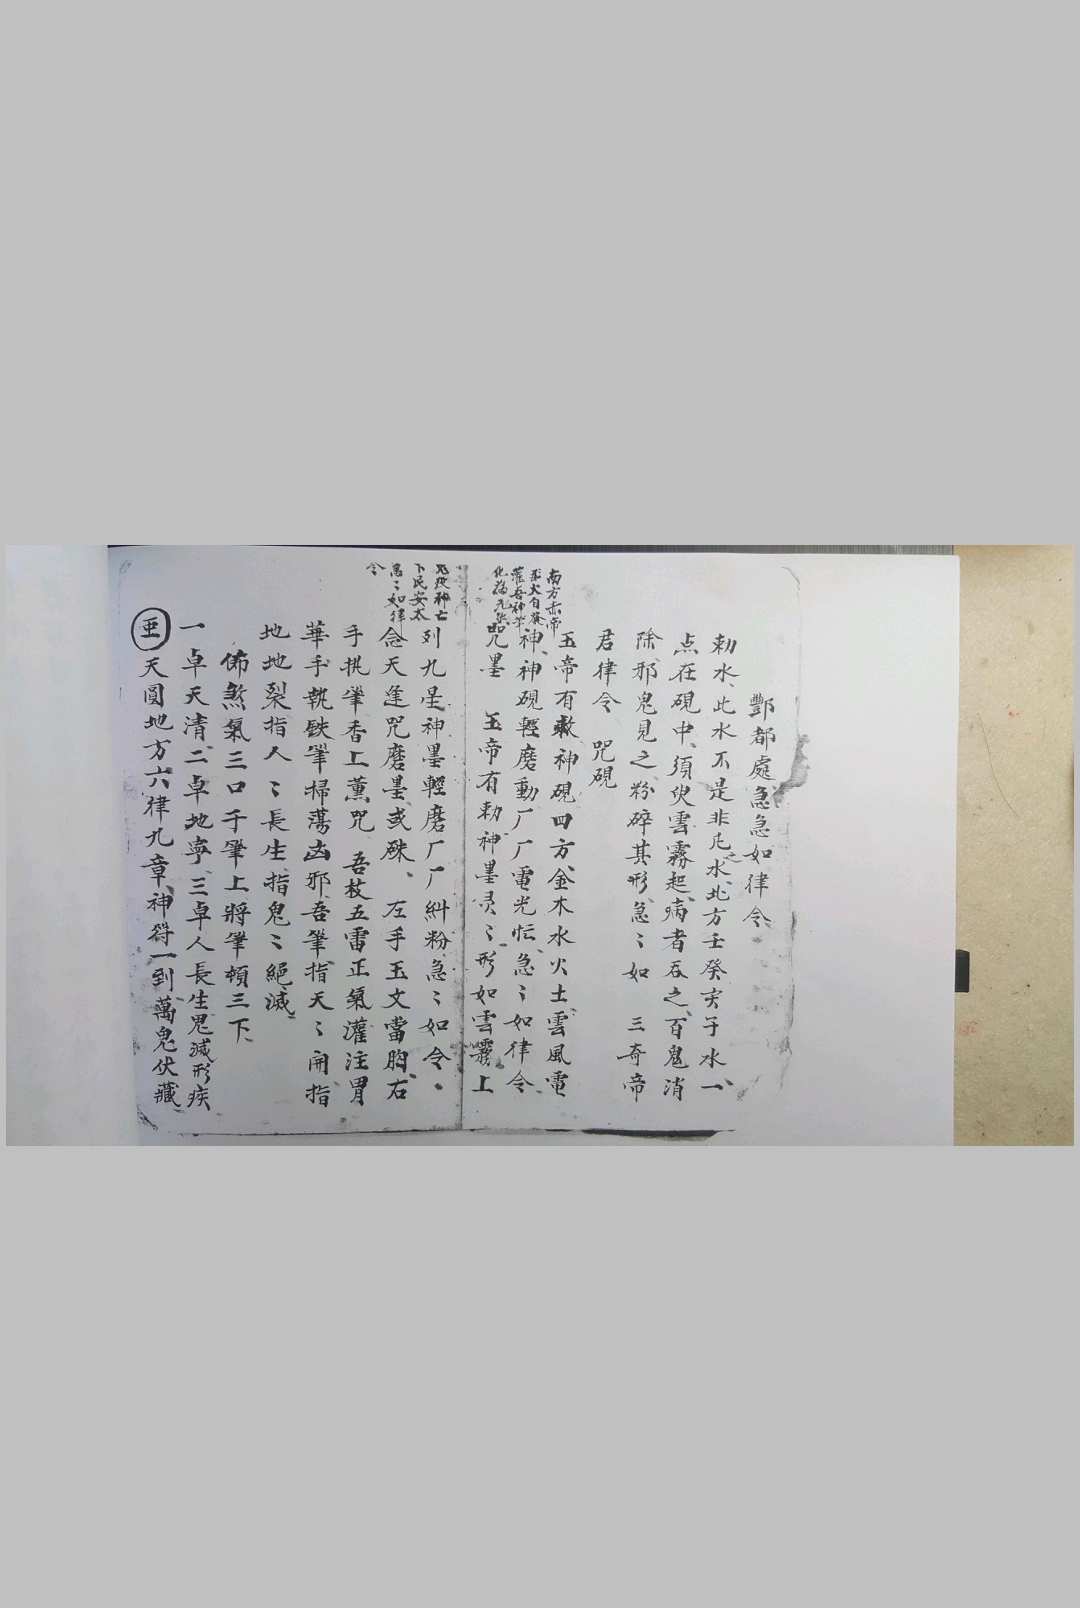 酆都處急急如律令
勅水、此水不是非凡之水、北方壬癸亥子水一、
点在硯中、須臾雲霧起、病者吞之、百鬼消
除、邪鬼見之、粉碎其形、急〻如 三奇帝
君律令 咒硯
玉帝有敕神硯四方、金木水火土、雲風電
神、神硯輕磨動厂厂電光忙、急〻如律令
咒墨 玉帝有勅神墨灵〻形如雲霧上
南方赤帝
灌吾神筆
列九星神墨輕磨厂厂糾粉急〻如令、
念天逢咒磨墨或硃、 左手玉文當胸、右
手提筆香上薰咒 吾枝五雷正氣灌注冒
華手執鉄筆掃蕩凶邪、吾筆指天〻開指
地地裂指人〻長生、指鬼〻絕滅、
佈煞氣三口于筆上將筆頓三下、
一卓天清、二卓地寧、三卓人長生鬼滅形疾
天圓地方六律九章、神符一到萬鬼伏藏、
下民安太
急〻如律
令